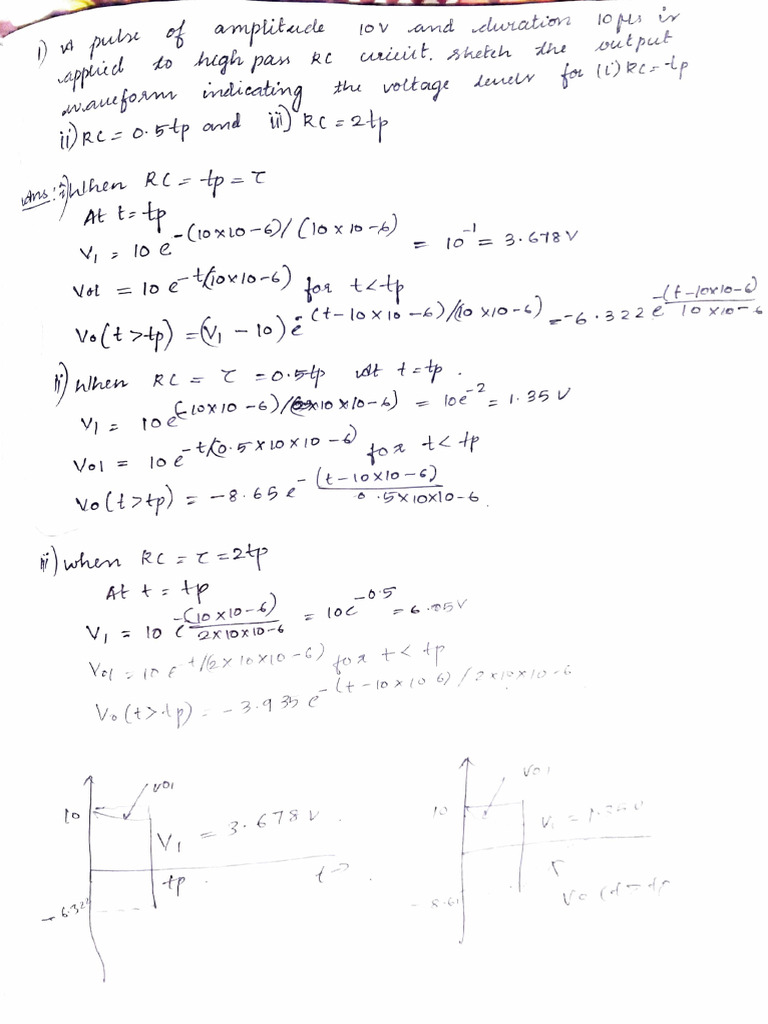 1) A pulse of amplitude 10V and duration 10 μs is
applied to high pass RC circuit. sketch the output
waveform indicating the voltage levels for (i) RC = tp
ii) RC = 0.5tp and iii) RC = 2tp
Ans: i) When RC = tp = τ
At t = tp
V1 = 10 e^-(10x10-6)/(10x10-6) = 10^-1 = 3.678V
Vo1 = 10 e^-t/(10x10-6) for t<tp
Vo(t>tp) = (V1 - 10) e^-(t-10x10-6)/(10x10-6) = -6.322 e^-(t-10x10-6)/10x10-6
ii) When RC = τ = 0.5tp At t = tp.
V1 = 10e^(-10x10-6)/(0.5x10x10-6) = 10e^-2 = 1.35 V
Vo1 = 10 e^-t/(0.5x10x10-6) for t<tp
Vo(t>tp) = -8.65 e^-(t-10x10-6)/0.5x10x10-6.
iii) when RC = τ = 2tp
At t = tp
V1 = 10 e^-(10x10-6)/2x10x10-6 = 10e^-0.5 = 6.05V
Vo1 = 10 e^-t/(2x10x10-6) for t<tp
Vo(t>tp) = -3.935 e^-(t-10x10 6)/2x10x10-6
10
Vo1
V1 = 3.678 V.
tp
t→
-6.322
10
Vo1
V1 =
Vo (t> tp